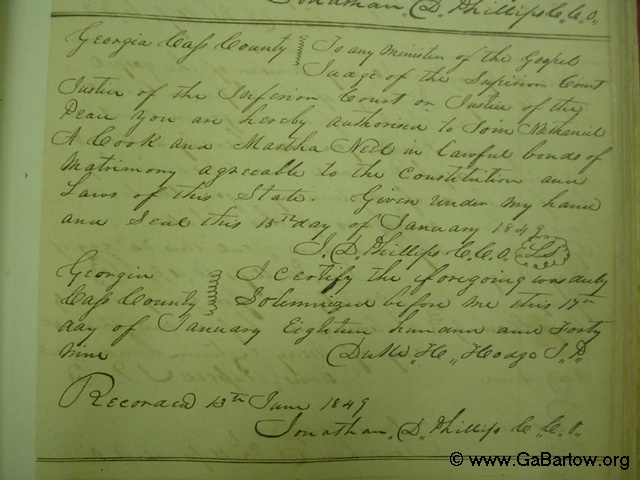 Jonathan, D, Phillips C, C, O,
Georgia Cass County } To any Minister of the Gospel
Judge of the Superior Court
Justice of the Inferior Court or Justice of the
Peace you are hereby authorised to Join Nathaniel
A Cook and Martha Neel in Lawful bonds of
Matrimony agreeable to the Constitution and
Laws of this State. Given under my hand
and Seal this 15th day of January 1849
J. D, Phillips C. C. O, LS
Georgia } I certify the foregoing was duly
Cass County } Solemnized before me this 17th
day of January Eighteen hundred and Forty
nine H,, Hodge J, P,
Recorded 13th June 1849
Jonathan, D,, Phillips C,, C,, O,,
© www.GaBartow.org